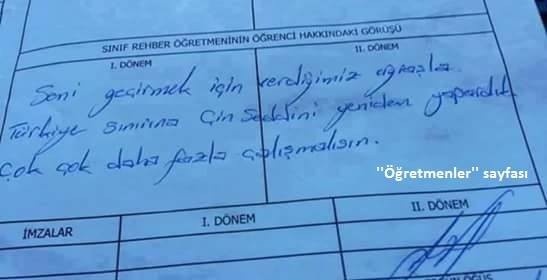 SINIF REHBER ÖĞRETMENİNİN ÖĞRENCİ HAKKINDAKİ GÖRÜŞÜ
I. DÖNEM II. DÖNEM
Seni geçirmek için verdiğimiz uğraşla
Türkiye sınırına Çin Seddini yeniden yapardık.
Çok çok daha fazla çalışmalısın.
"Öğretmenler" sayfası
İMZALAR I. DÖNEM II. DÖNEM